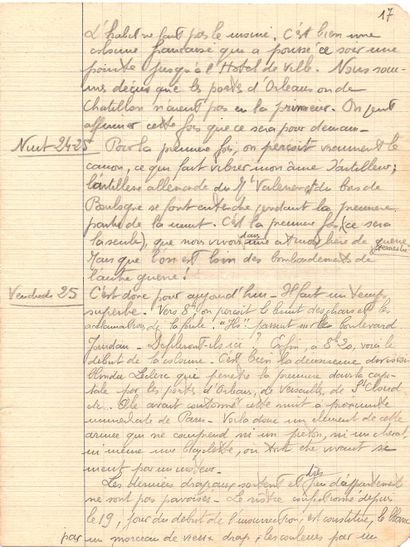 17
L'habit ne fait pas le moine. C'est bien une
colonne française qui a poussé ce soir une
pointe jusqu'à l'Hotel de Ville. Nous som-
mes déçus que les portes d'Orléans ou de
Chatillon n'aient pas eu la primeur. On peut
affirmer cette fois que ce sera pour demain.
Nuit 24-25 Pour la première fois, on perçoit vraiment le
canon, ce qui fait vibrer mon âme d'artilleur;
l'artillerie allemande du Mt Valérien et du bois de
Boulogne se font entendre pendant la première
partie de la nuit. C'est la première fois (ce sera
la seule), que nous vivons dans une atmosphère de guerre
Mais que l'on est loin des bombardements de
l'autre guerre!
Vendredi 25 C'est donc pour aujourd'hui. Il fait un temps
superbe. Vers 8h, on perçoit le bruit des chars et les
acclamations de la foule. sur le boulevard
Jourdan. Défileront-ils ici? Enfin, à 8h20, voici le
début de la colonne. C'est bien la deuxième division
blindée Leclerc que pénètre la première dans la capi-
tale par les portes d'Orléans, de Versailles, de St Cloud
etc. Elle avait cantonné cette nuit à proximité
immédiate de Paris. Voilà donc un élément de cette
armée qui ne comprend ni un piéton, ni un cheval,
ni même une bicyclette, où tout être vivant se
meut par un moteur.
Les derniers drapeaux sortent et très peu d'appartements
ne sont pas pavoisés. Le nôtre confectionné depuis
le 19, jour du début de l'insurrection, est constitué, le blanc
par un morceau de vieux drap, les couleurs par un